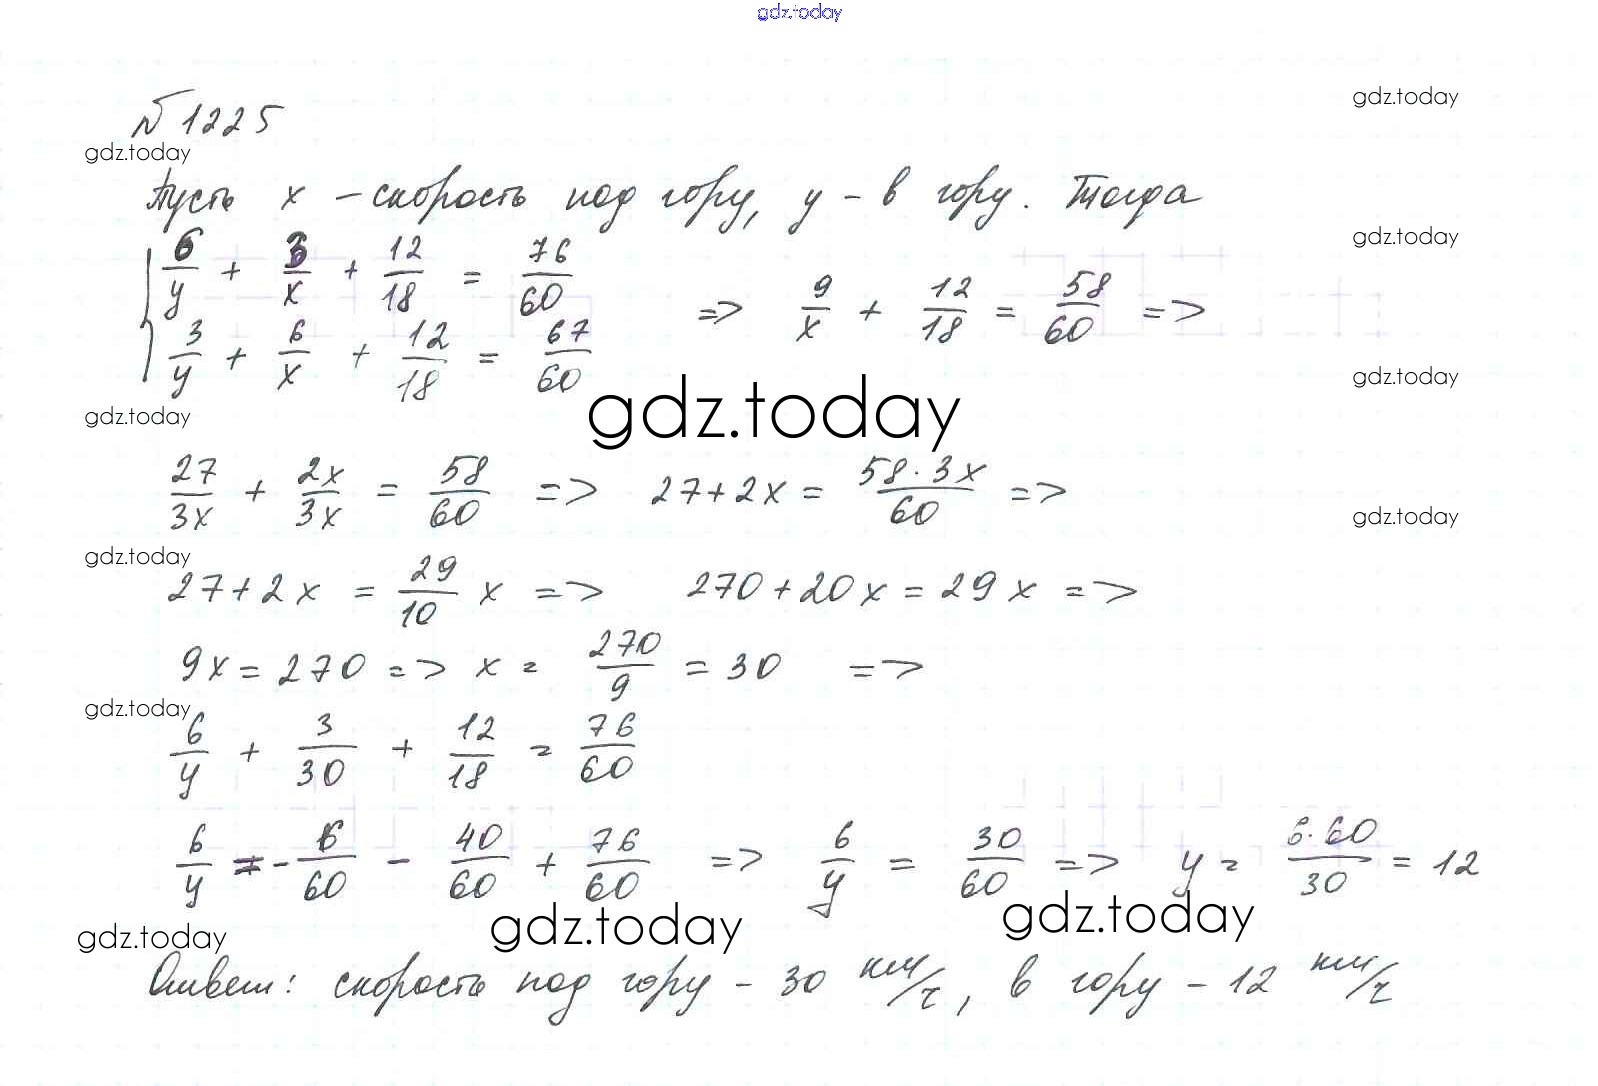 gdz.today
gdz.today
№ 1225
gdz.today
Пусть x – скорость под гору, y – в гору. Тогда
gdz.today
{ 6/y + 3/x + 12/18 = 76/60
3/y + 6/x + 12/18 = 67/60 => 9/x + 12/18 = 58/60 =>
gdz.today
gdz.today
gdz.today
27/3x + 2x/3x = 58/60 => 27 + 2x = 58·3x/60 =>
gdz.today
gdz.today
27 + 2x = 29/10 x => 270 + 20x = 29x =>
9x = 270 => x = 270/9 = 30 =>
gdz.today
6/y + 3/30 + 12/18 = 76/60
6/y = - 6/60 - 40/60 + 76/60 => 6/y = 30/60 => y = 6·60/30 = 12
gdz.today
gdz.today
gdz.today
Ответ: скорость под гору – 30 км/ч, в гору – 12 км/ч